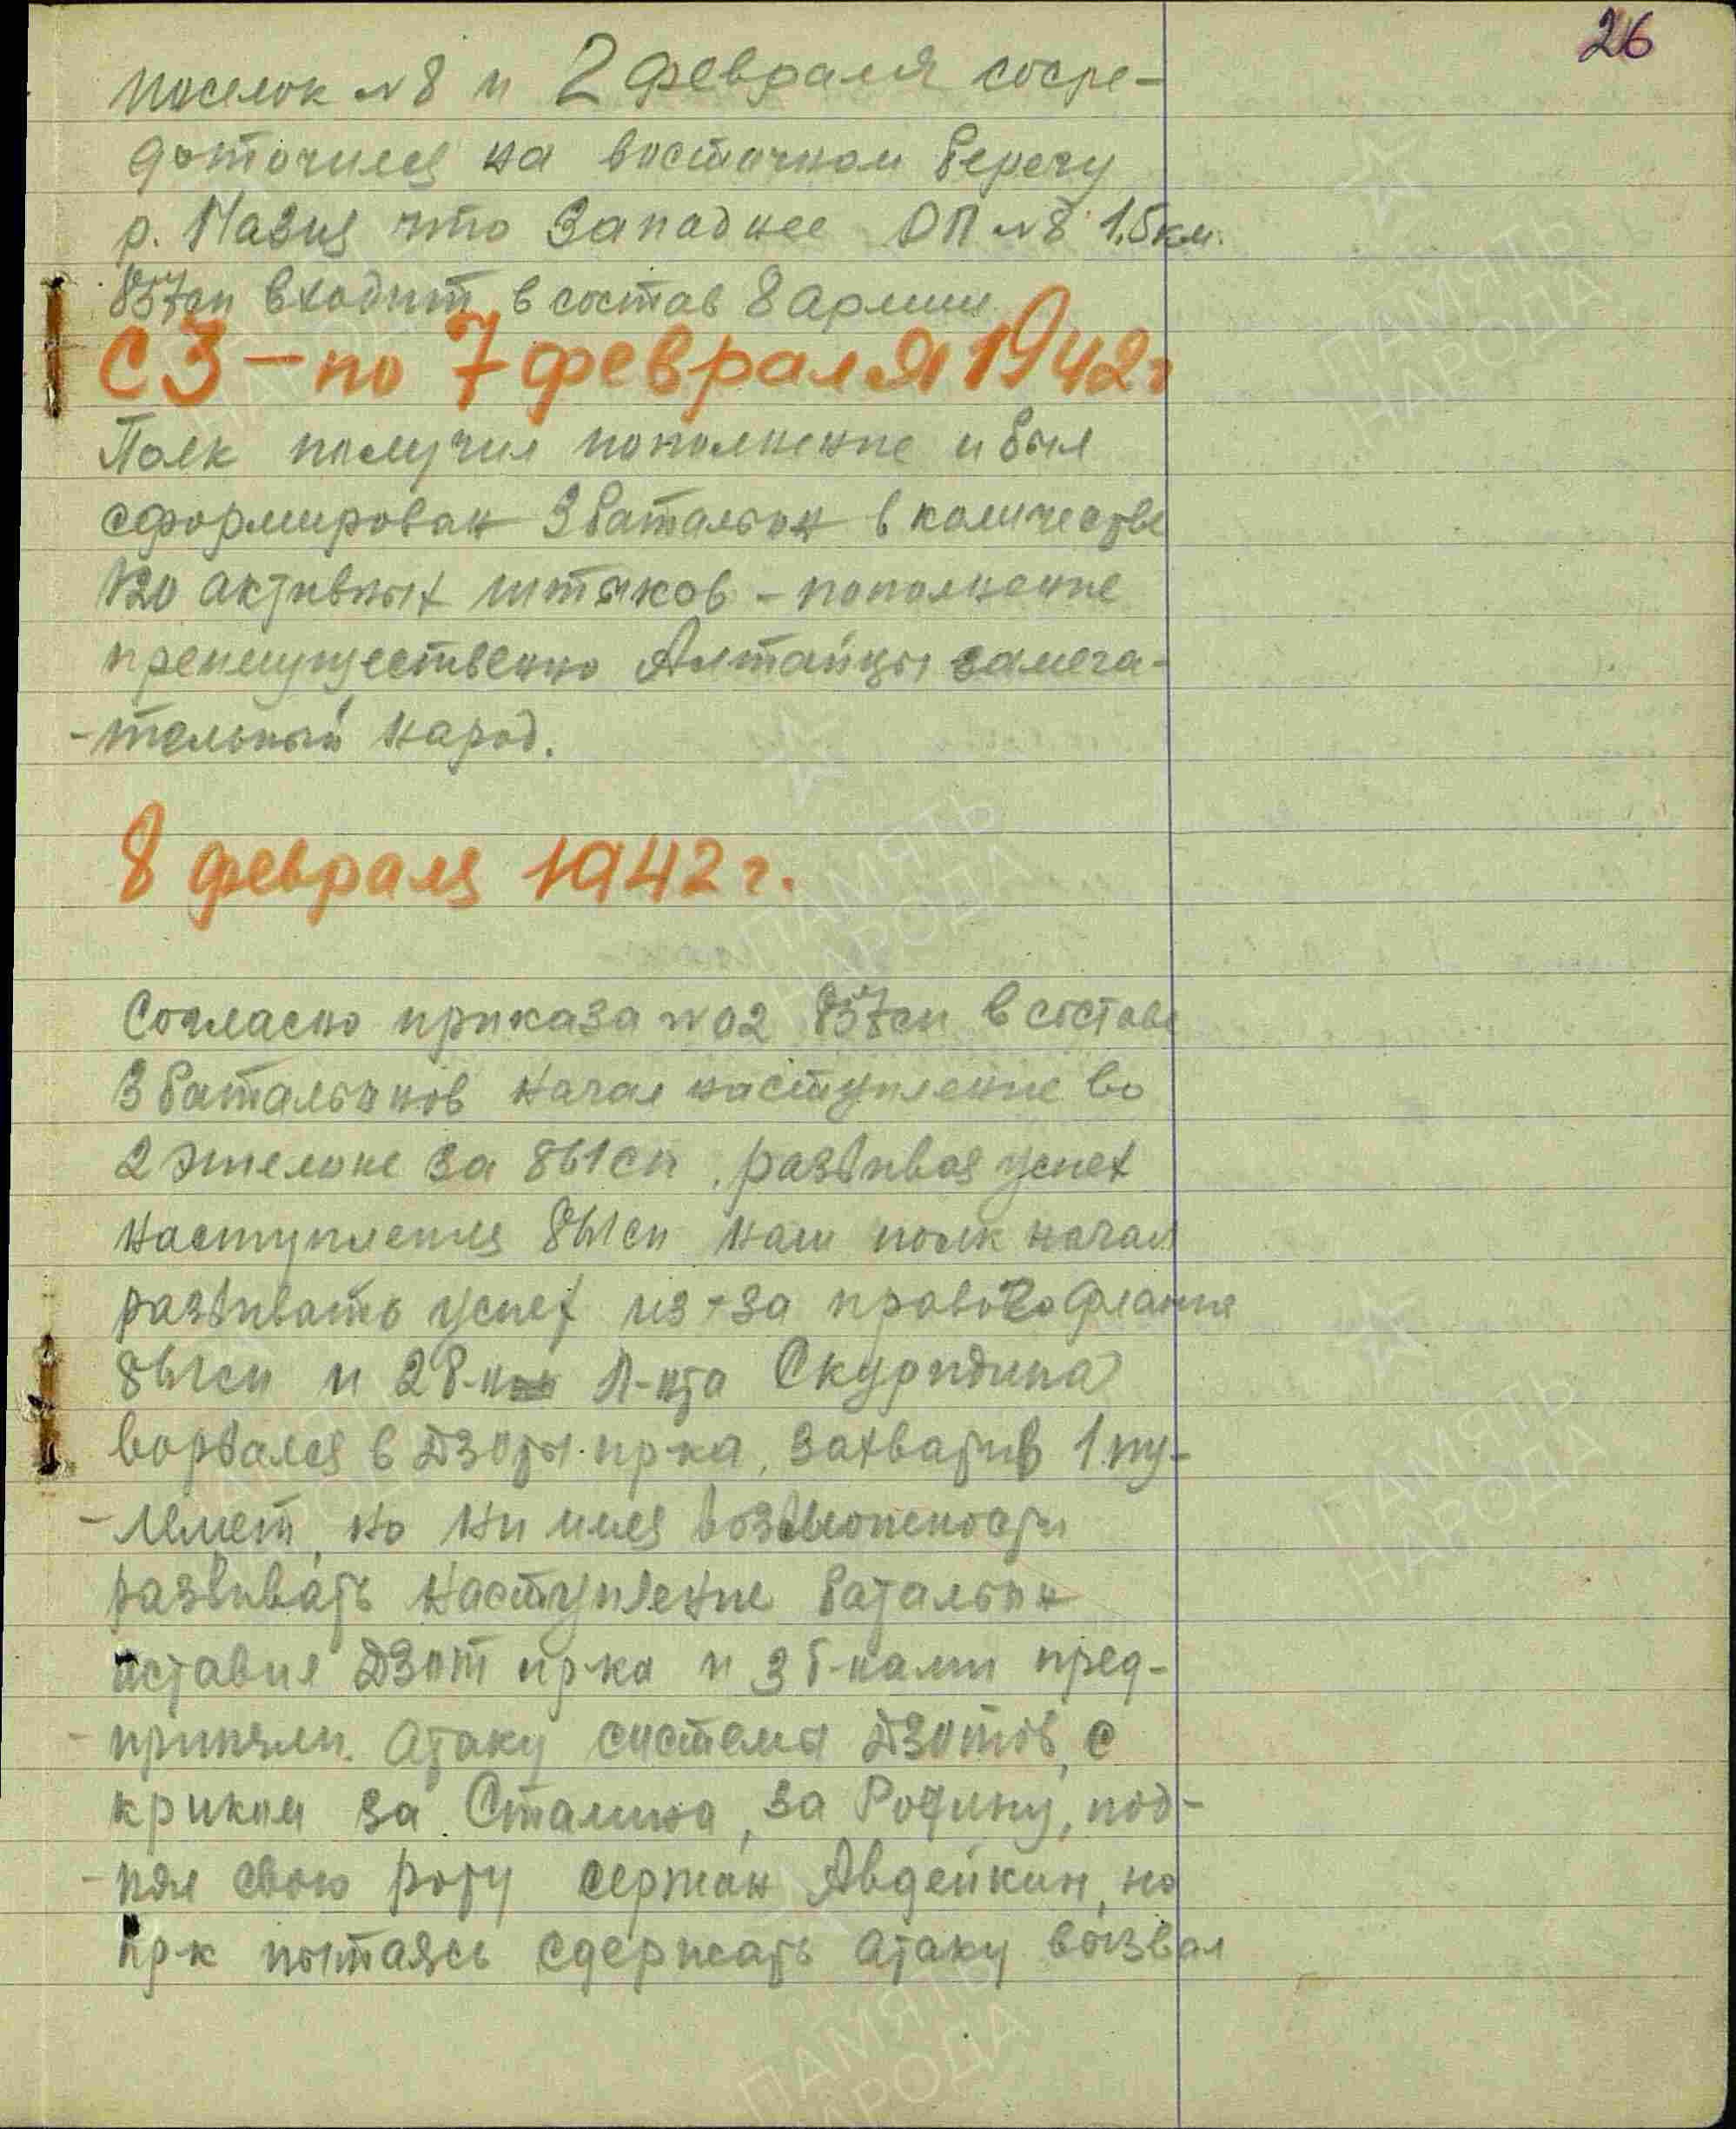 26
поселок №8 и 2 февраля сосре-
доточился на восточном берегу
р. Назия что западнее ОП №8 1,5км.
857сп входит в состав 8 армии
С 3 – по 7 февраля 1942г
Полк получил пополнение и был
сформирован 3 батальон в количестве
120 активных штыков – пополнение
преимущественно Алтайцы замеча-
-тельный народ.
8 февраля 1942 г.
Согласно приказа №02 857сп в составе
3 батальонов начал наступление во
2 эшелоне за 861сп, развивая успех
наступления 861сп наш полк начал
развивать успех из-за правого фланга
861сп и 2 б-н л-нта Скуридина
ворвался в ДЗОты пр-ка, захватив 1 пу-
-лемет, но ни имея возможности
развивать наступление батальон
оставил ДЗот пр-ка и 3 б-нами пред-
-приняли атаку системы ДЗотов, с
криком за Сталина, за Родину, под-
-нял свою роту сержан Авдейкин, но
пр-к пытаясь сдержать атаку вызвал
ПАМЯТЬ
НАРОДА
ПАМЯТЬ
НАРОДА
ПАМЯТЬ
НАРОДА
ПАМЯТЬ
НАРОДА